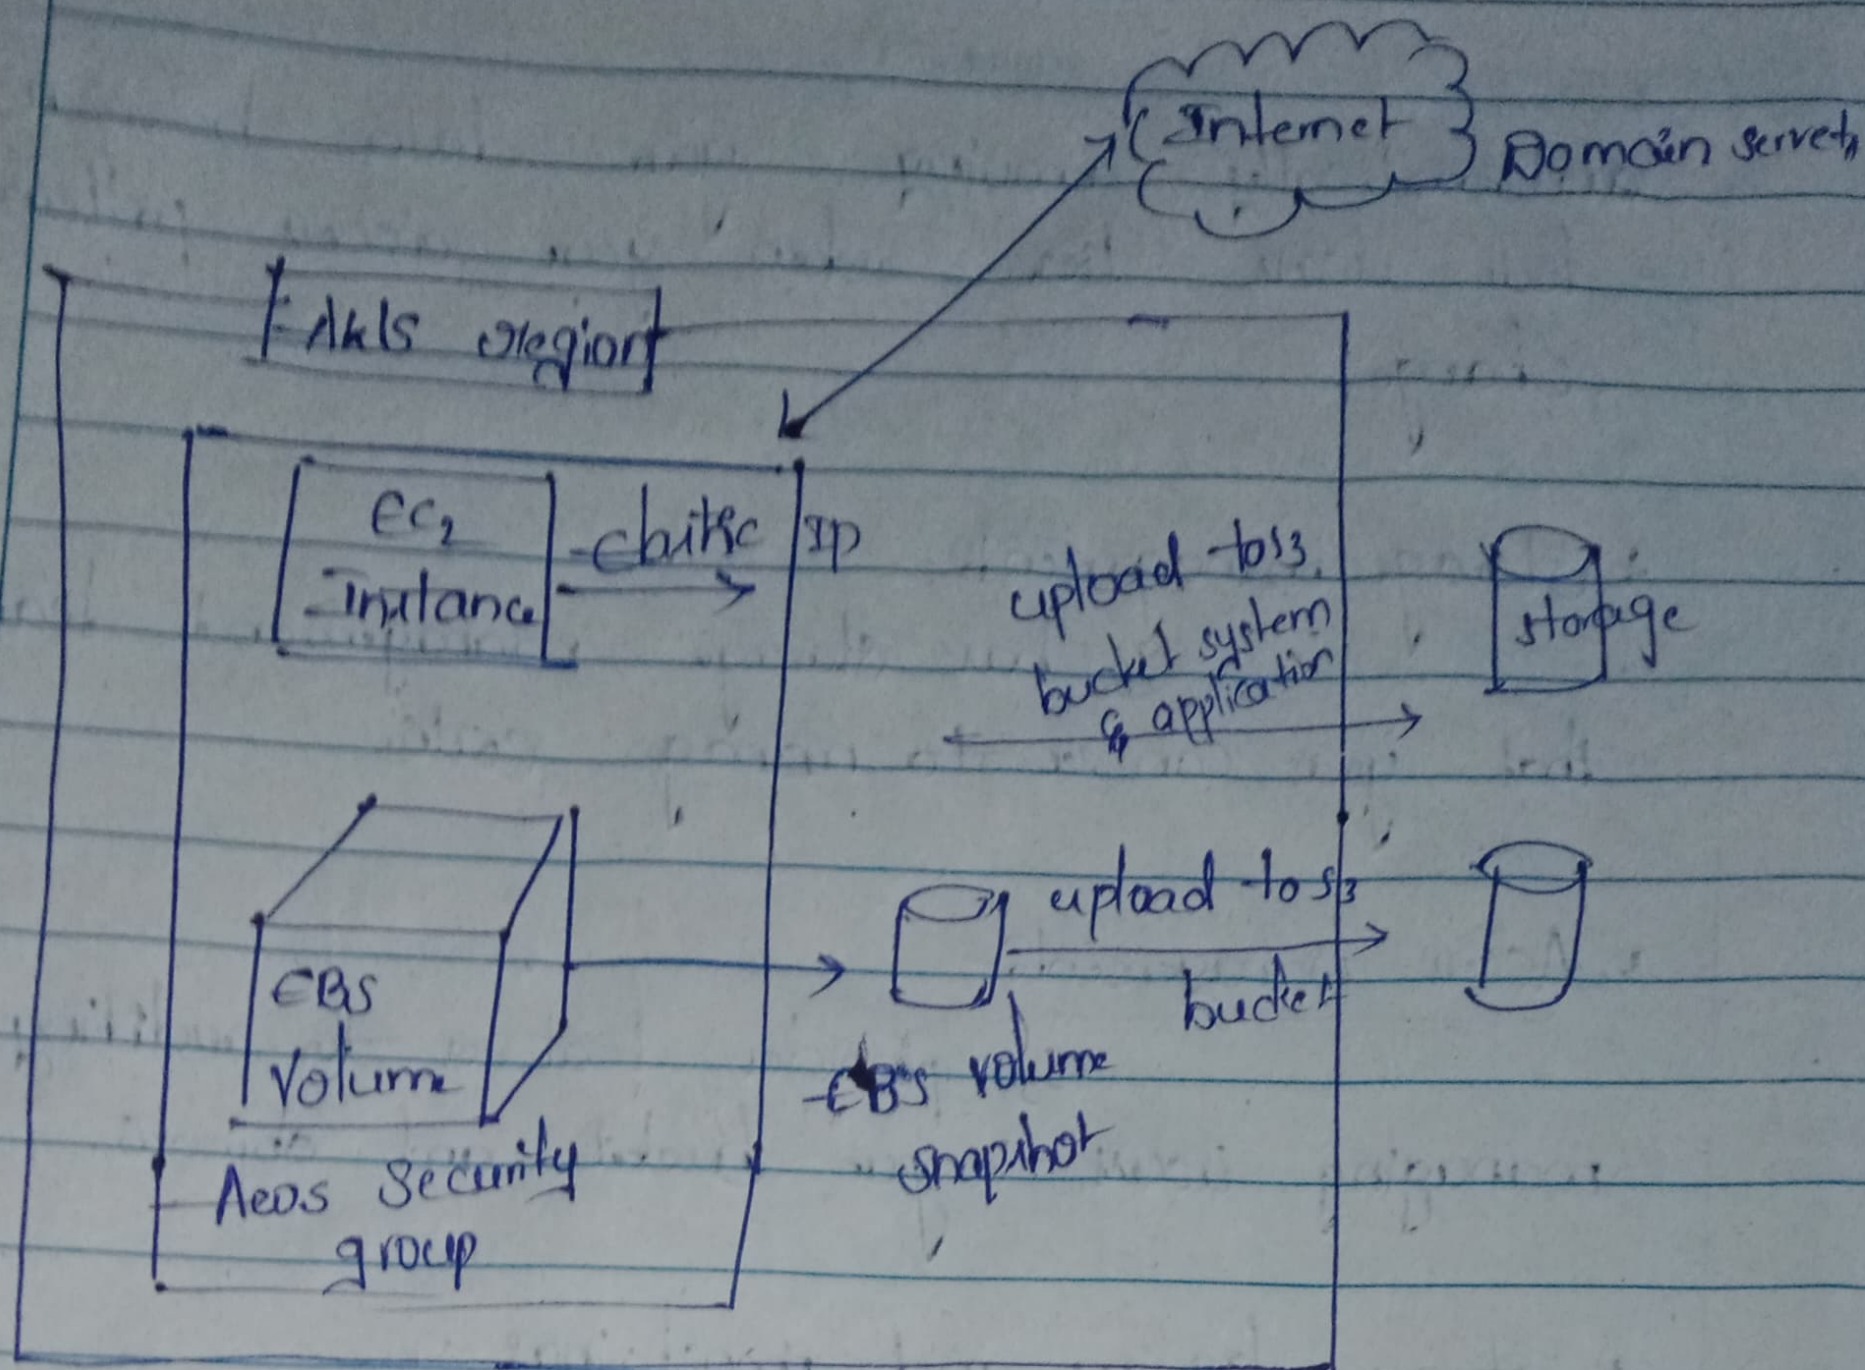 Internet
Domain server
AWS region
EC2
Instance
Elastic IP
upload to s3
bucket system
& application
storage
EBS
Volume
upload to s3
bucket
EBS volume
snapshot
security
group